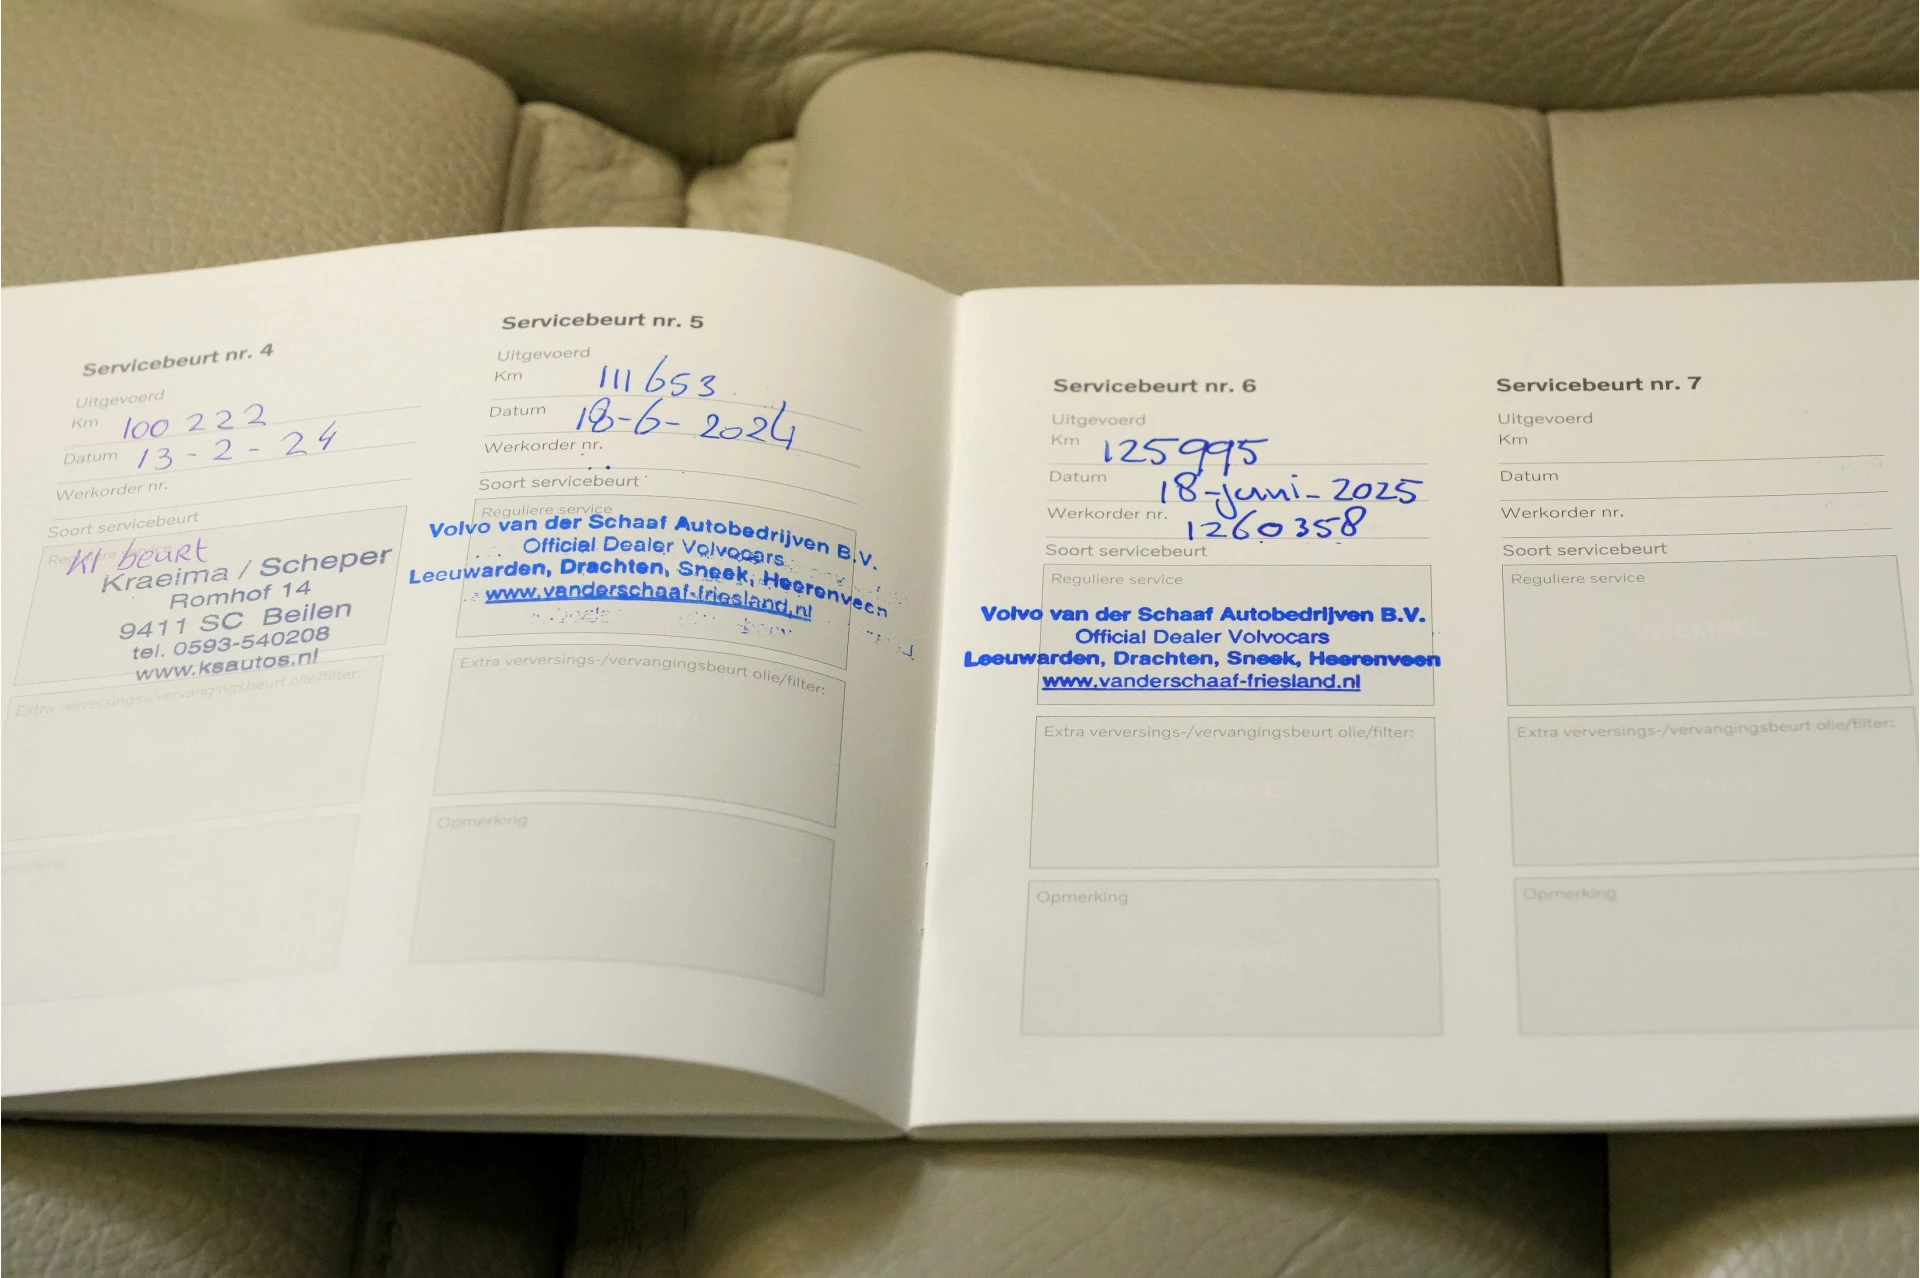 Servicebeurt nr. 4
Uitgevoerd
Km 100 222
Datum 13-2-24
Werkorder nr.
Soort servicebeurt
Reguliere service
kl beurt
Kraeima / Scheper
Romhof 14
9411 SC Beilen
tel. 0593-540208
www.ksautos.nl
Extra verversings-/vervangingsbeurt olie/filter:
Servicebeurt nr. 5
Uitgevoerd
Km 111653
Datum 18-6-2024
Werkorder nr.
Soort servicebeurt
Reguliere service
Volvo van der Schaaf Autobedrijven B.V.
Official Dealer Volvocars
Leeuwarden, Drachten, Sneek, Heerenveen
www.vanderschaaf-friesland.nl
Extra verversings-/vervangingsbeurt olie/filter:
STEMPEL
Opmerking
Servicebeurt nr. 6
Uitgevoerd
Km 125995
Datum 18-juni-2025
Werkorder nr. 1260358
Soort servicebeurt
Reguliere service
Volvo van der Schaaf Autobedrijven B.V.
Official Dealer Volvocars
Leeuwarden, Drachten, Sneek, Heerenveen
www.vanderschaaf-friesland.nl
Extra verversings-/vervangingsbeurt olie/filter:
STEMPEL
Opmerking
Servicebeurt nr. 7
Uitgevoerd
Km
Datum
Werkorder nr.
Soort servicebeurt
Reguliere service
STEMPEL
Extra verversings-/vervangingsbeurt olie/filter:
STEMPEL
Opmerking